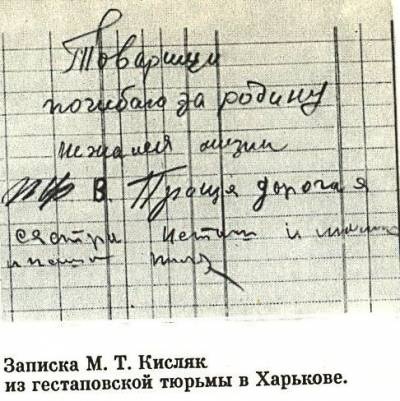 Товарищи
погибаю за родину
не жалея жизни
В. Прощя дорогая
сестри
Записка М. Т. Кисляк
из гестаповской тюрьмы в Харькове.